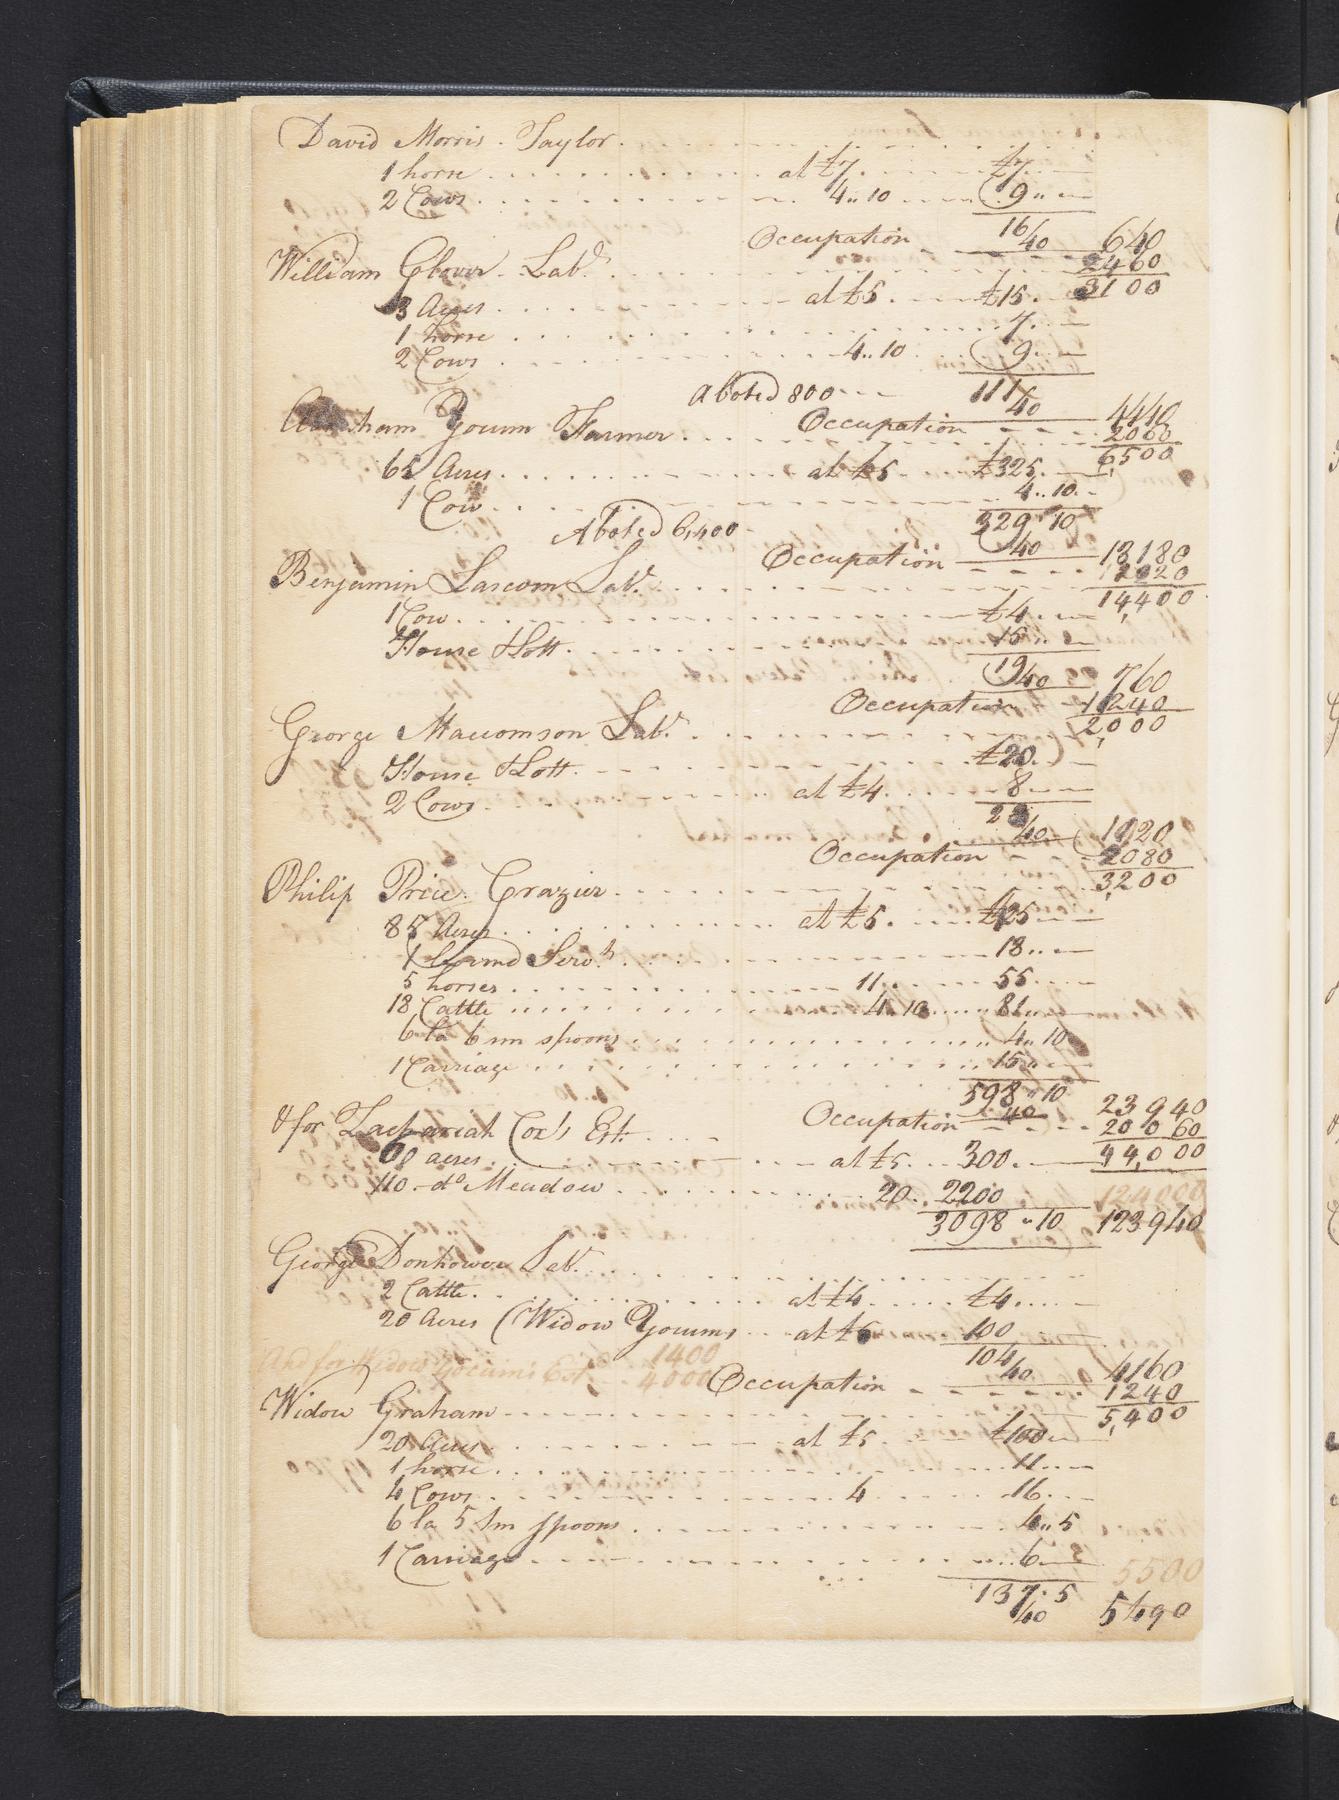 David Morris . Taylor
1 horse at £7 £7
2 Cows 4 .. 10 9 .. —
16
Occupation 40 640
2460
3100
William Glover . Labr.
3 Acres at £5 £15 . —
1 horse 7 . —
2 Cows 4 .. 10 9 . —
Abated 800 111
Occupation 40 4440
2060
6,500
Abraham Yocum Farmer
65 Acres at £5 £325 . —
1 Cow 4 .. 10 . —
Abated 6,400 329 " 10
Occupation 40 13180
14,400
Benjamin Lascom Labr.
1 Cow £4 . —
House & Lott 15 .. —
19
40 760
Occupation 1240
2,000
George Maucomson Labr.
House & Lott £20 . —
2 Cows at £4 8 —
28
40 1120
Occupation 2080
3,200
Philip Price . Grazier
at £5
18 .. —
5 horses 11 55 . —
18 Cattle 4 .. 10 81 .. —
6 la 6 sm spoons 4 .. 10
1 Carriage 15 .. —
598 " 10
40 23940
Occupation 20060
44,000
& for Zachariah Cox's Est.
acres at £5 300 . —
110 . do Meadow 20 . 2200 124000
3098 " 10 123940
George Donhower Labr.
2 Cattle at £4 £4 . —
20 Acres (Widow Yocums at £5 100
104
And for Widow Yocum's Est. 1400
4000
40 4160
Occupation 1240
5,400
Widow Graham
20 Acres at £5 £100 .. —
1 horse 11 . —
4 Cows 4 16 . —
6 la 5 sm spoons 4 .. 5
1 Carriage 6 —
5500
137 . 5
40 5490